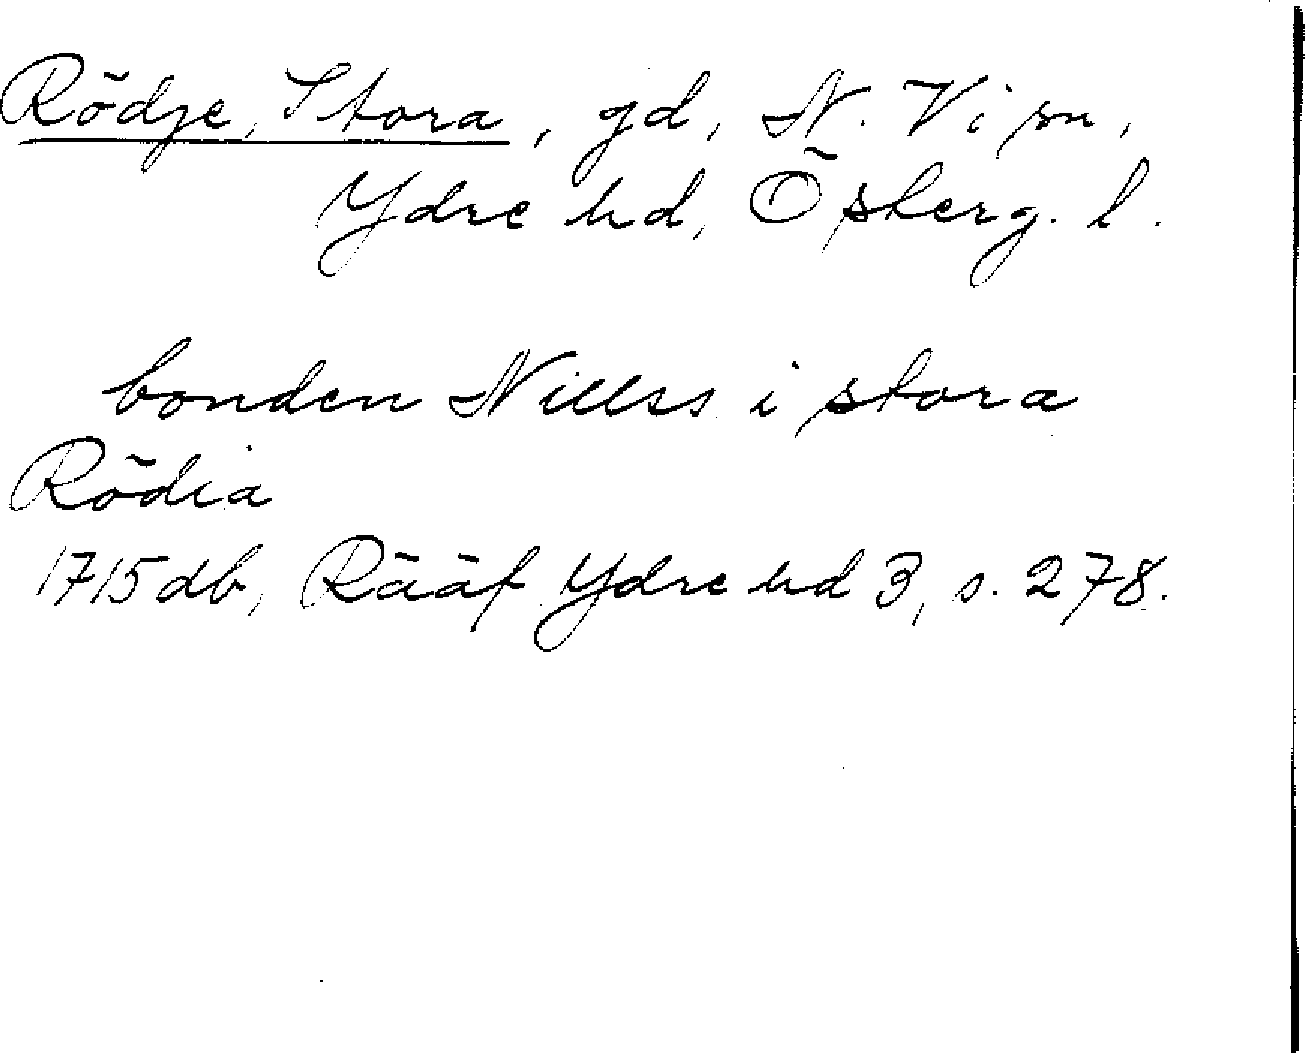 Rödje, Stora, gd, N. Vi sn,
Ydre hd, Österg. l.
bonden Nillss i stora
Rödia
1715 db, Rääf Ydre hd 3, s. 278.